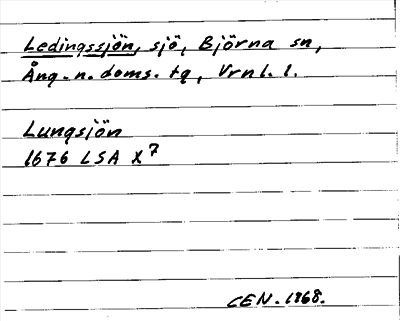 Ledingssjön, sjö, Björna sn,
Ång. n. doms. tg, Vrnl. l.
Lungsjön
1676 LSA X7
CEN. 1968.